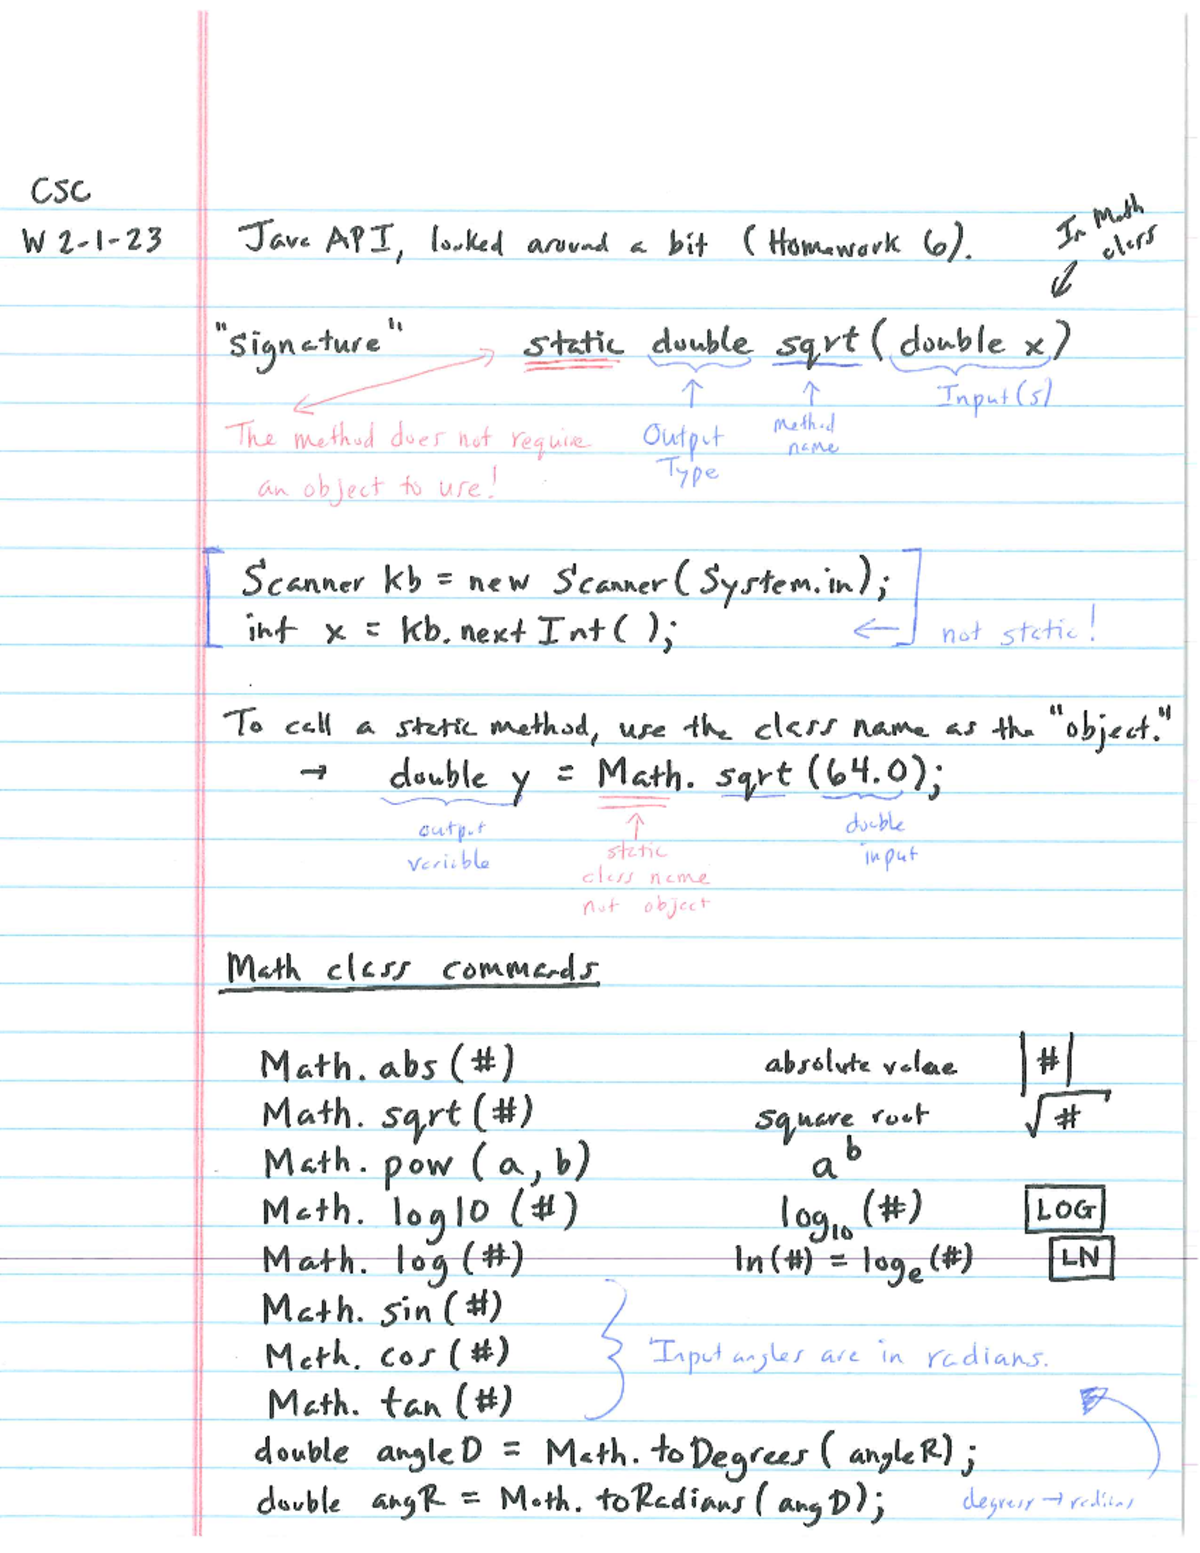 CSC
W 2-1-23
Java API, looked around a bit (Homework 6).
In Math
class
"signature" static double sqrt(double x)
The method does not require
an object to use!
Output
Type
method
name
Input(s)
Scanner kb = new Scanner(System.in);
int x = kb.nextInt();
not static!
To call a static method, use the class name as the "object."
→ double y = Math.sqrt(64.0);
output
variable
static
class name
not object
double
input
Math class commands
Math.abs(#) absolute value |#|
Math.sqrt(#) square root √#
Math.pow(a,b) a^b
Math.log10(#) log₁₀(#) LOG
Math.log(#) ln(#) = logₑ(#) LN
Math.sin(#)
Math.cos(#) Input angles are in radians.
Math.tan(#)
double angleD = Math.toDegrees(angleR);
double angR = Math.toRadians(angD); degrees → radians